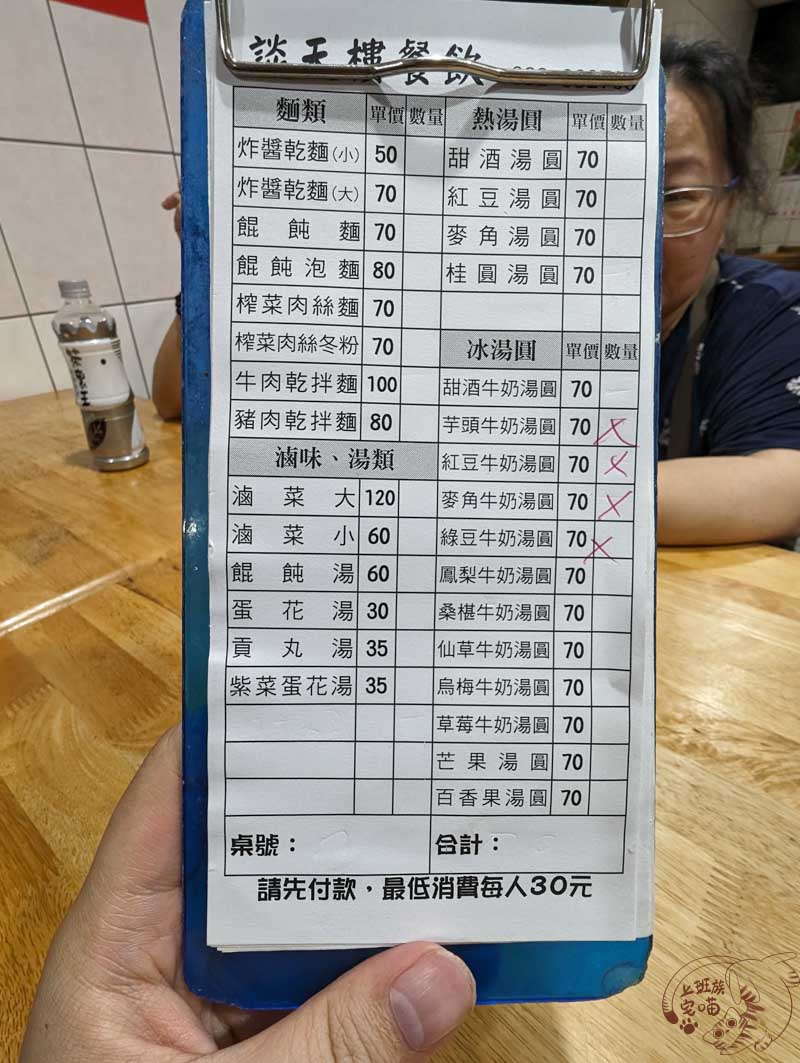 談天樓餐飲
麵類 單價 數量
炸醬乾麵(小) 50
炸醬乾麵(大) 70
餛飩麵 70
餛飩泡麵 80
榨菜肉絲麵 70
榨菜肉絲冬粉 70
牛肉乾拌麵 100
豬肉乾拌麵 80
滷味、湯類
滷菜大 120
滷菜小 60
餛飩湯 60
蛋花湯 30
貢丸湯 35
紫菜蛋花湯 35
熱湯圓 單價 數量
甜酒湯圓 70
紅豆湯圓 70
麥角湯圓 70
桂圓湯圓 70
冰湯圓 單價 數量
甜酒牛奶湯圓 70
芋頭牛奶湯圓 70
紅豆牛奶湯圓 70
麥角牛奶湯圓 70
綠豆牛奶湯圓 70
鳳梨牛奶湯圓 70
桑椹牛奶湯圓 70
仙草牛奶湯圓 70
烏梅牛奶湯圓 70
草莓牛奶湯圓 70
芒果湯圓 70
百香果湯圓 70
桌號： 合計：
請先付款，最低消費每人30元
上班族
宅喵